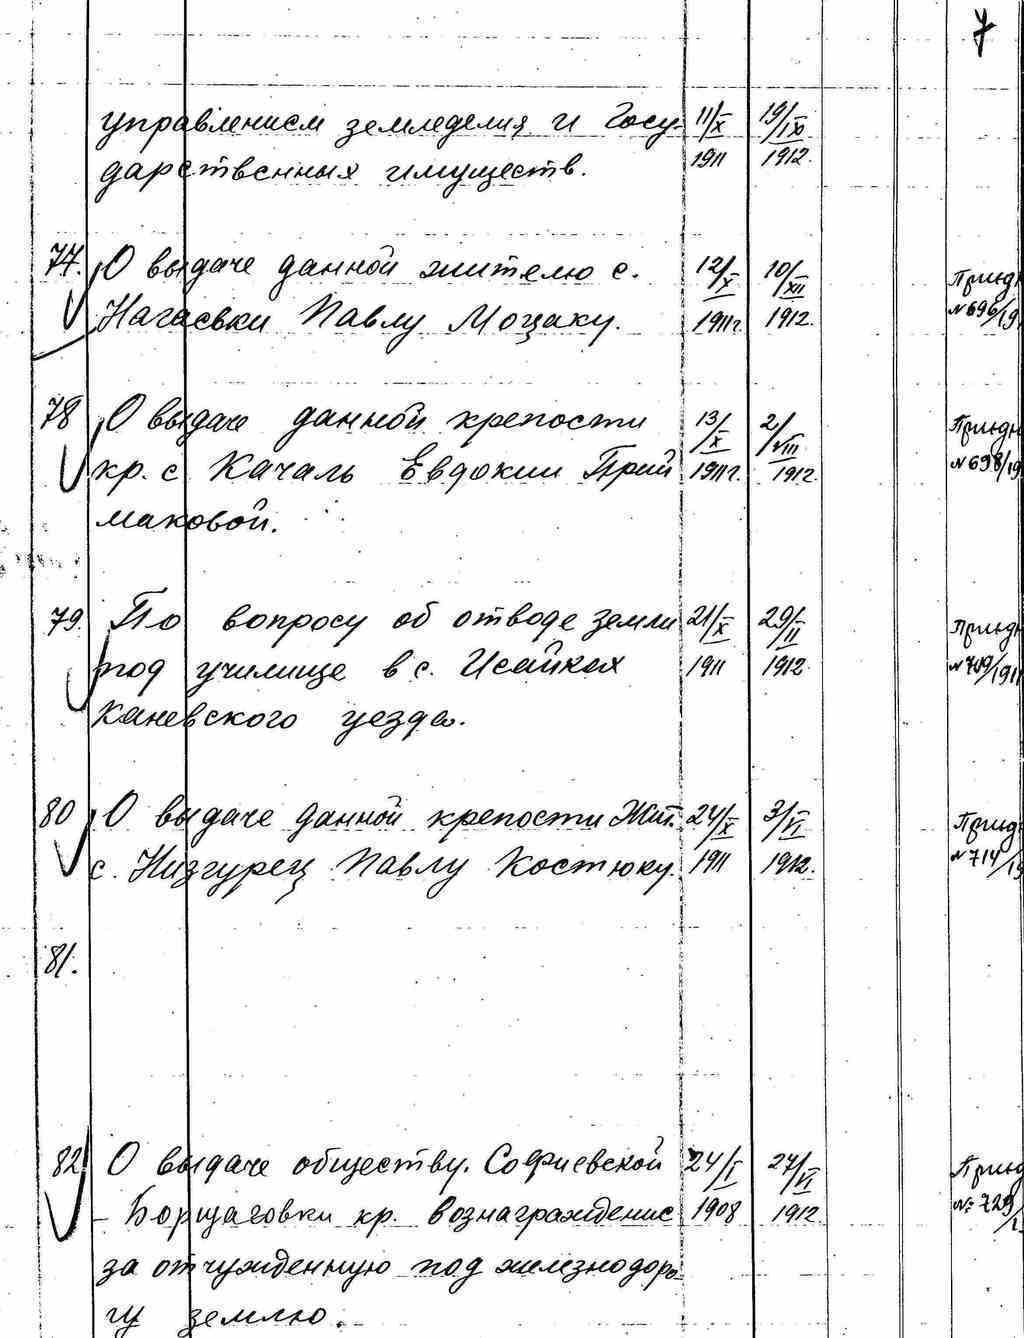 7
управлением земледелия и Госу- 11/X 19/IX
дарственных имуществ. 1911 1912.
77. О выдаче данной жителю с. 12/X 10/XII Приюдн
Нагаевки Павлу Моцаку. 1911г. 1912. №696/19
78 О выдаче данной крепости 13/X 2/VIII Приюдн
кр. с Качаль Евдокии Прий 1911г. 1912. №698/19
маковой.
79. По вопросу об отводе земли 21/X 29/II Приюдн
под училище в с. Исайках 1911 1912 №709/1911
Каневского уезда.
80 О выдаче данной крепости Жит. 24/X 3/VI Приюд
с. Низгурец Павлу Костюку. 1911 1912. №714/19
81.
82 О выдаче обществу. Софиевской 24/I 27/VI Приюд
- Борщаговки кр. вознаграждение 1908 1912 №729/1
за отчужденную под железнодоро
гу землю.